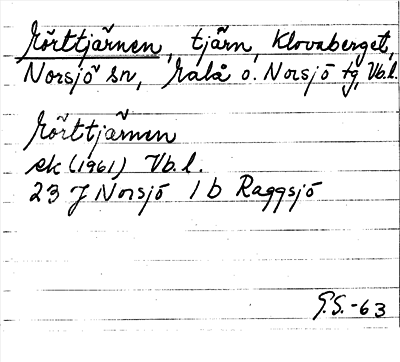 Körttjärnen, tjärn, Klovaberget,
Norsjö sn, Malå o. Norsjö tg, Vb.l.
Körttjärnen
ek (1961) Vb.l.
23 J Norsjö 1 b Raggsjö
G.S.-63